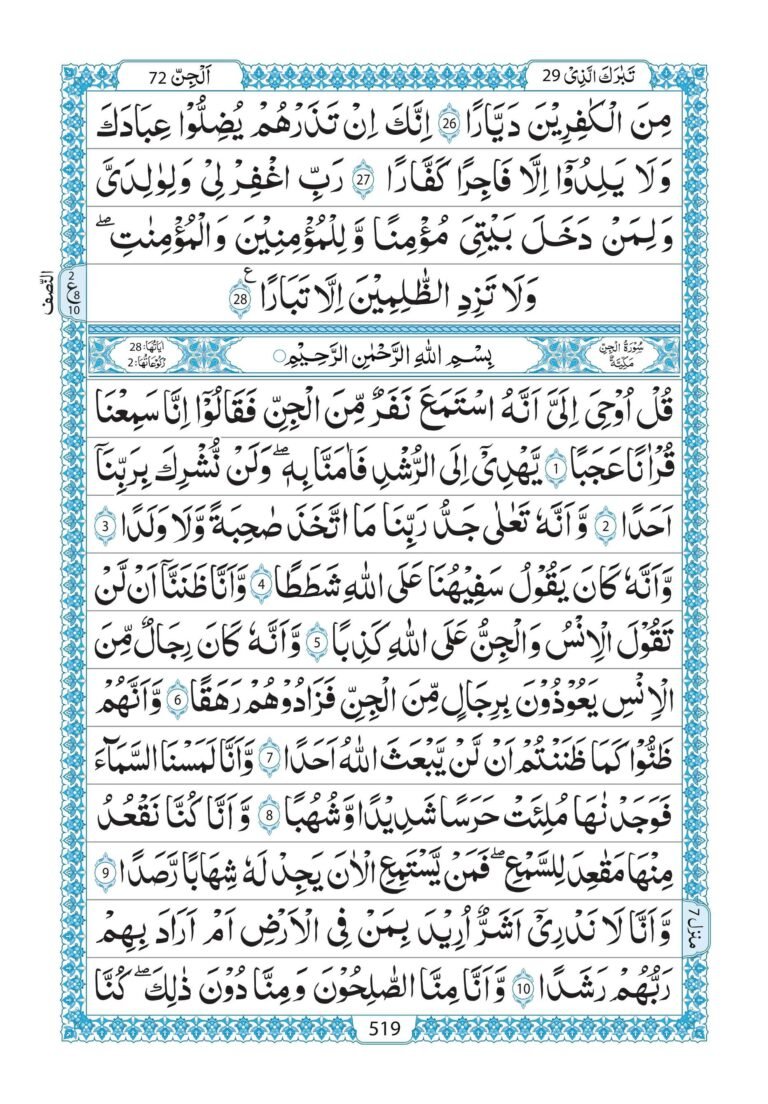 تَبٰرَكَ الَّذِىْ 29
اَلْجِنّ 72
مِنَ الْكٰفِرِيْنَ دَيَّارًا 26 اِنَّكَ اِنْ تَذَرْهُمْ يُضِلُّوْا عِبَادَكَ
وَلَا يَلِدُوْۤا اِلَّا فَاجِرًا كَفَّارًا 27 رَبِّ اغْفِرْ لِىْ وَلِوَالِدَىَّ
وَلِمَنْ دَخَلَ بَيْتِىَ مُؤْمِنًا وَّ لِلْمُؤْمِنِيْنَ وَالْمُؤْمِنٰتِ ؕ
وَلَا تَزِدِ الظّٰلِمِيْنَ اِلَّا تَبَارًا 28 ع
النّصف
2
ع 8
10
سُوْرَةُ الْجِنِّ مَكِّيَّةٌ
بِسْمِ اللهِ الرَّحْمٰنِ الرَّحِيْمِ
اٰيَاتُهَا: 28
رُكُوْعَاتُهَا: 2
قُلْ اُوْحِىَ اِلَىَّ اَنَّهُ اسْتَمَعَ نَفَرٌ مِّنَ الْجِنِّ فَقَالُوْۤا اِنَّا سَمِعْنَا
قُرْاٰنًا عَجَبًا 1 يَّهْدِىْۤ اِلَى الرُّشْدِ فَاٰمَنَّا بِهٖ ؕ وَلَنْ نُّشْرِكَ بِرَبِّنَاۤ
اَحَدًا 2 وَّ اَنَّهٗ تَعٰلٰى جَدُّ رَبِّنَا مَا اتَّخَذَ صَاحِبَةً وَّلَا وَلَدًا 3
وَّاَنَّهٗ كَانَ يَقُوْلُ سَفِيْهُنَا عَلَى اللهِ شَطَطًا 4 وَّاَنَّا ظَنَنَّاۤ اَنْ لَّنْ
تَقُوْلَ الْاِنْسُ وَالْجِنُّ عَلَى اللهِ كَذِبًا 5 وَّاَنَّهٗ كَانَ رِجَالٌ مِّنَ
الْاِنْسِ يَعُوْذُوْنَ بِرِجَالٍ مِّنَ الْجِنِّ فَزَادُوْهُمْ رَهَقًا 6 وَّاَنَّهُمْ
ظَنُّوْا كَمَا ظَنَنْتُمْ اَنْ لَّنْ يَّبْعَثَ اللهُ اَحَدًا 7 وَّاَنَّا لَمَسْنَا السَّمَآءَ
فَوَجَدْنٰهَا مُلِئَتْ حَرَسًا شَدِيْدًا وَّشُهُبًا 8 وَّ اَنَّا كُنَّا نَقْعُدُ
مِنْهَا مَقَاعِدَ لِلسَّمْعِ ؕ فَمَنْ يَّسْتَمِعِ الْاٰنَ يَجِدْ لَهٗ شِهَابًا رَّصَدًا 9
وَّاَنَّا لَا نَدْرِىْۤ اَشَرٌّ اُرِيْدَ بِمَنْ فِى الْاَرْضِ اَمْ اَرَادَ بِهِمْ
رَبُّهُمْ رَشَدًا 10 وَّاَنَّا مِنَّا الصّٰلِحُوْنَ وَمِنَّا دُوْنَ ذٰلِكَ ؕ كُنَّا
منزل 7
519